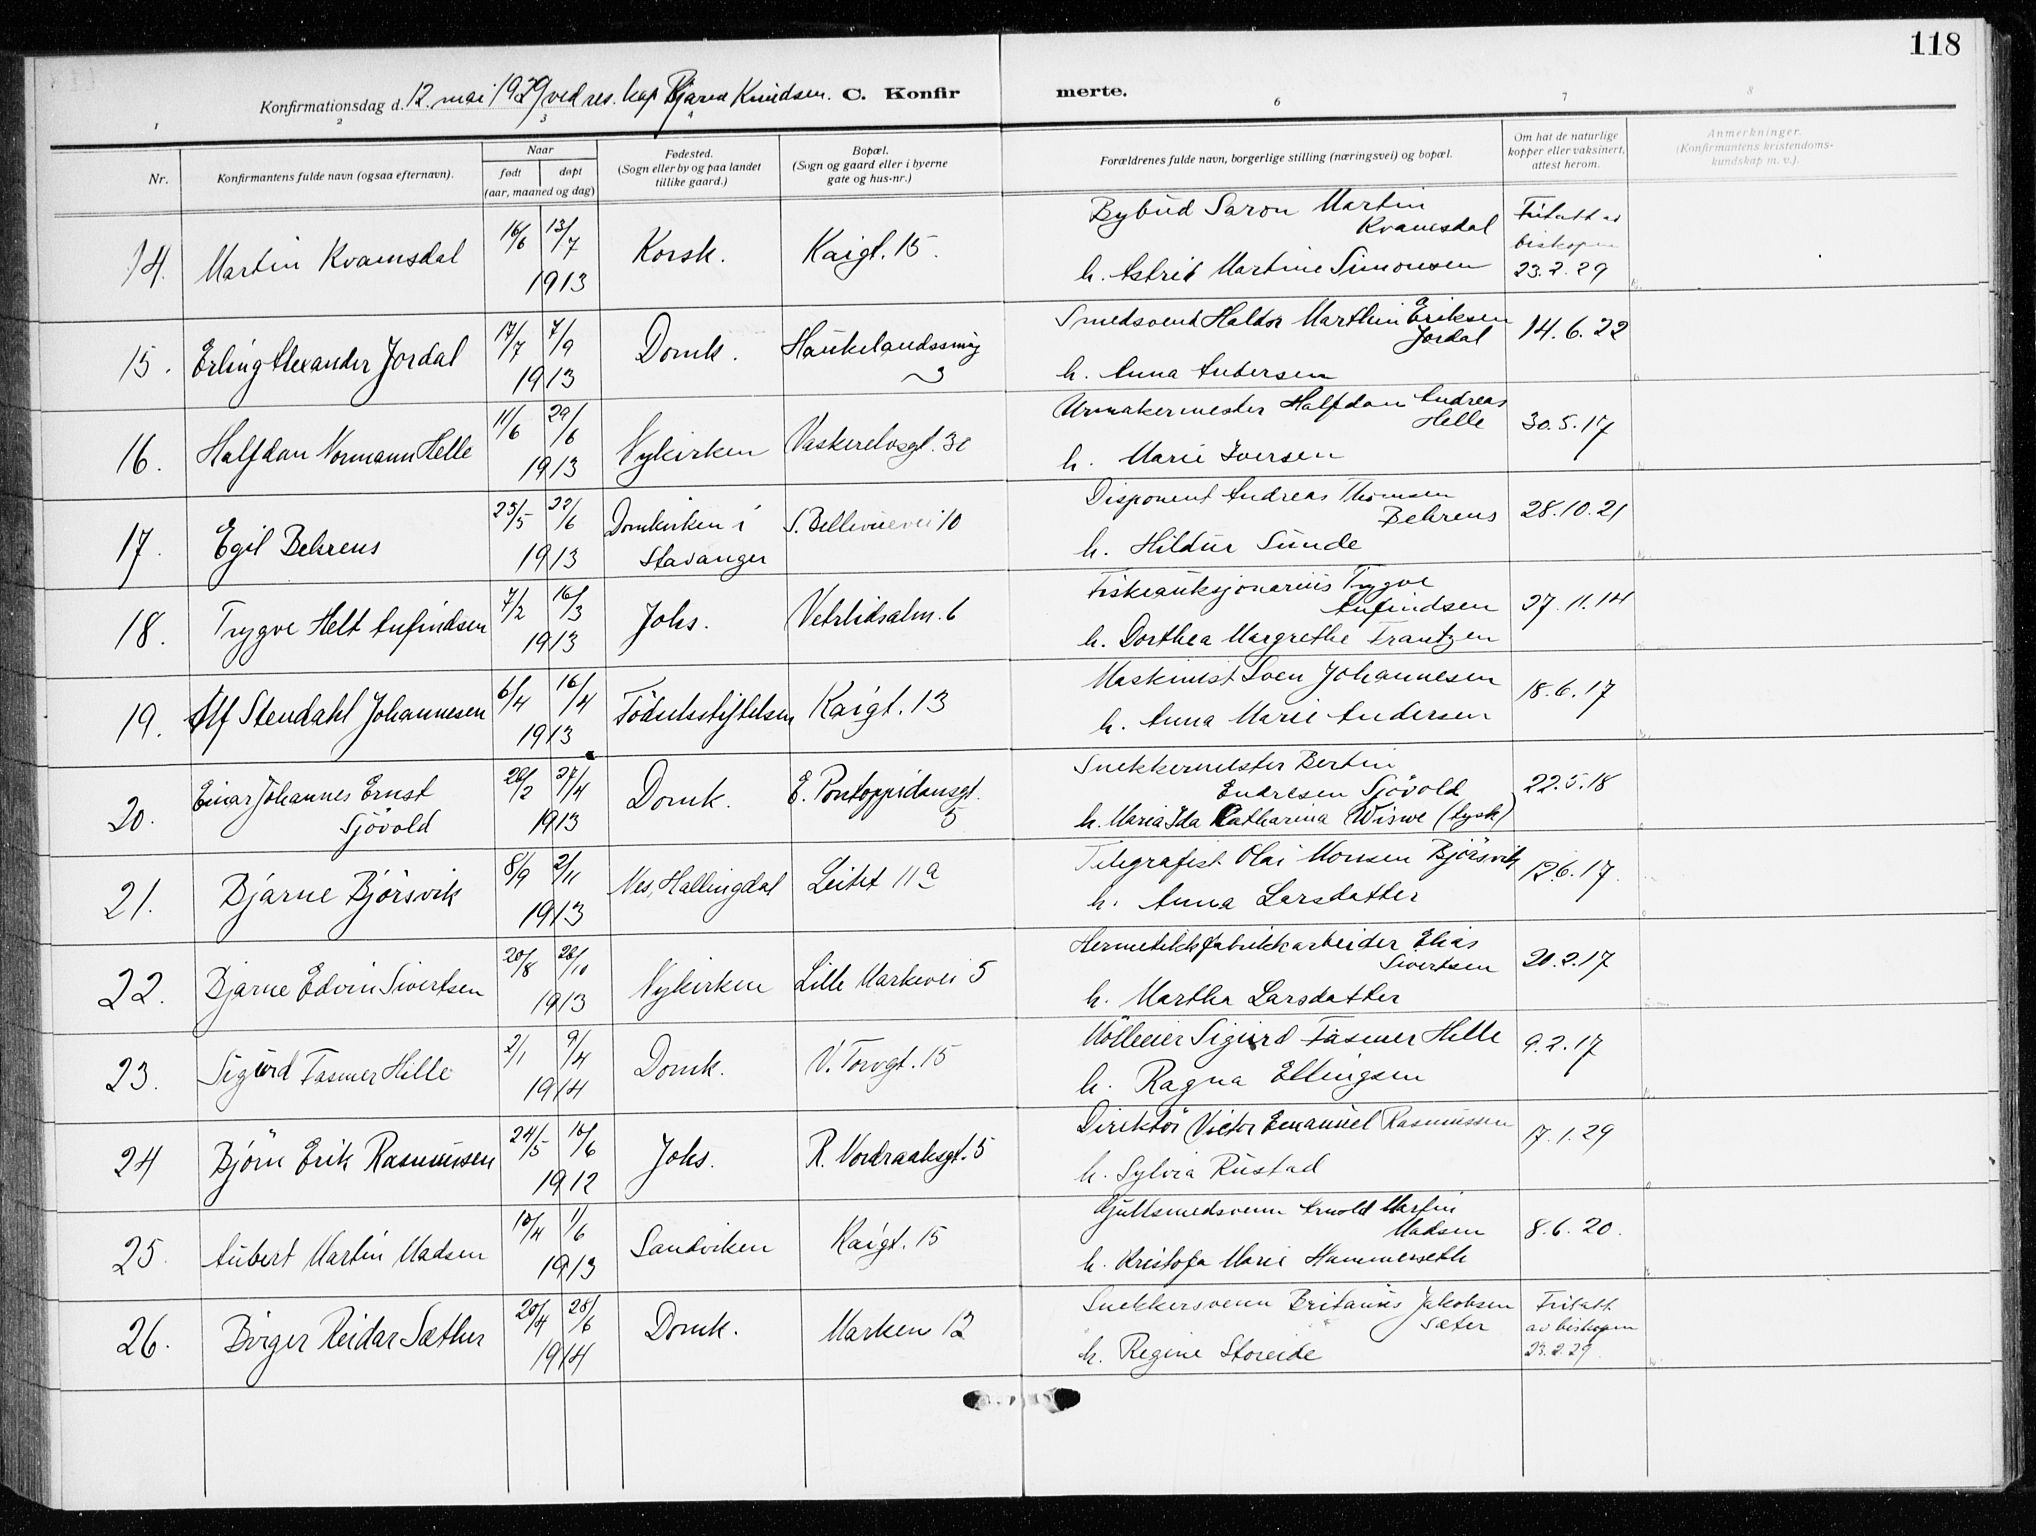 118
Konfirmationsdag d. 12. mai 1929 ved res. kap Bjarne Knudsen. C. Konfir merte.
1 2 3 4 6 7 8
Nr. Konfirmantens fulde navn (ogsaa efternavn). Naar født døpt (aar, maaned og dag) Fødested. (Sogn eller by og paa landet tillike gaard.) Bopæl. (Sogn og gaard eller i byerne gate og hus-nr.) Forældrenes fulde navn, borgerlige stilling (næringsvei) og bopæl. Om hat de naturlige kopper eller vaksinert, attest herom. Anmerkninger. (Konfirmantens kristendoms-kundskap m. v.).
14. Martin Kvamsdal 16/6 13/7 1913 Korsk. Kaigt. 15. Bybud Saron Martin Kvamsdal
h. Astrid Martine Simonsen Fritatt av biskopen 23.2.29
15. Erling Alexander Jordal 17/7 7/9 1913 Domk. Haukelandssving 3 Smedsvend Haldor Marthin Eriksen Jordal
h. Anna Andersen 14.6.22
16. Halfdan Normann Helle 11/6 29/6 1913 Nykirken Vaskerelvsgt. 30 Urmakermester Halfdan Andreas Helle
h. Marie Iversen 30.5.17
17. Egil Behrens 25/5 22/6 1913 Domkirken i Stavanger S. Bellevuevei 10 Disponent Andreas Thomsen Behrens
h. Hildur Sunde 28.10.21
18. Trygve Helt Anfindsen 7/2 16/3 1913 Johs. Vetrlidsalm. 6 Fiskeauksjonarius Trygve Anfindsen
h. Dorthea Margrethe Frantzen 27.11.14
19. Alf Stendahl Johannesen 6/4 16/4 1913 Födselsstiftelsen Kaigt. 13 Maskinist Sven Johannesen
h. Anna Marie Andersen 18.6.17
20. Einar Johannes Ernst Sjövold 26/2 27/4 1913 Domk. E. Pontoppidansgt. 5 Snekkermester Bertin Endresen Sjövold
h. Maria Ida Catharina Wiswe (tysk) 22.5.18
21. Bjarne Björsvik 8/9 2/11 1913 Nes, Hallingdal Leitet 11a Telegrafist Olai Monsen Björsvik
h. Anna Larsdatter 12.6.17.
22. Bjarne Edvin Sivertsen 20/8 26/10 1913 Nykirken Lille Markevei 5 Hermetikkfabrikkarbeider Elias Sivertsen
h. Martha Larsdatter 20.2.17
23. Sigurd Fasmer Hille 2/1 9/4 1914 Domk. V. Torvgt. 15 Möllereier Sigurd Fasmer Hille
h. Ragna Ellingsen 9.2.17
24 Björn Erik Rasmussen 24/5 16/6 1912 Johs. R. Nordraaksgt. 5 Direktör Victor Emanuel Rasmussen
h. Sylvia Rustad 17.1.29
25. Aubert Martin Madsen 10/4 1/6 1913 Sandviken Kaigt. 15 Gullsmedsvenn Arnold Martin Madsen
h. Kristofa Marie Hammerseth 8.6.20.
26. Birger Reidar Sæther 20/4 28/6 1914 Domk. Marken 12 Snekkersvenn Britanus Jakobsen Sæter
h. Regine Storeide Fritatt av biskopen 23.2.29.